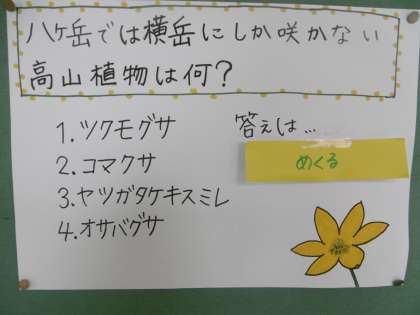 八ヶ岳では横岳にしか咲かない
高山植物は何？
1.ツクモグサ
2.コマクサ
3.ヤツガタケキスミレ
4.オサバグサ
答えは…
めくる